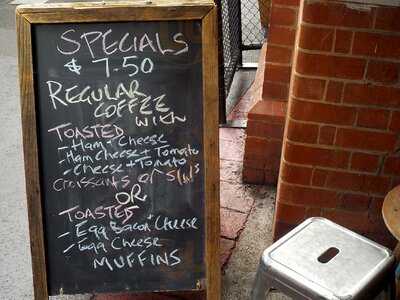 SPECIALS
$ 7.50
REGULAR
COFFEE
WITH
TOASTED
- Ham + Cheese
- Ham Cheese + Tomato
- Cheese + Tomato
Croissants or S/W's
OR
TOASTED
- Egg Bacon + Cheese
- Egg Cheese
MUFFINS